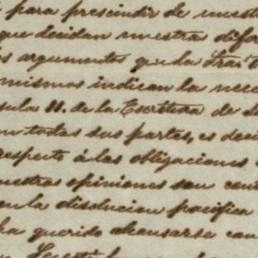 para prescindir de nuest
que decidan nuestra difer
os argumentos que la Srai
mismos indican la nece
sula 11. de la Escritura de
en todas sus partes, es deci
respecto á las obligaciones
nuestras opiniones son cont
en la disolucion pacifica
ha querido alcanzarse con